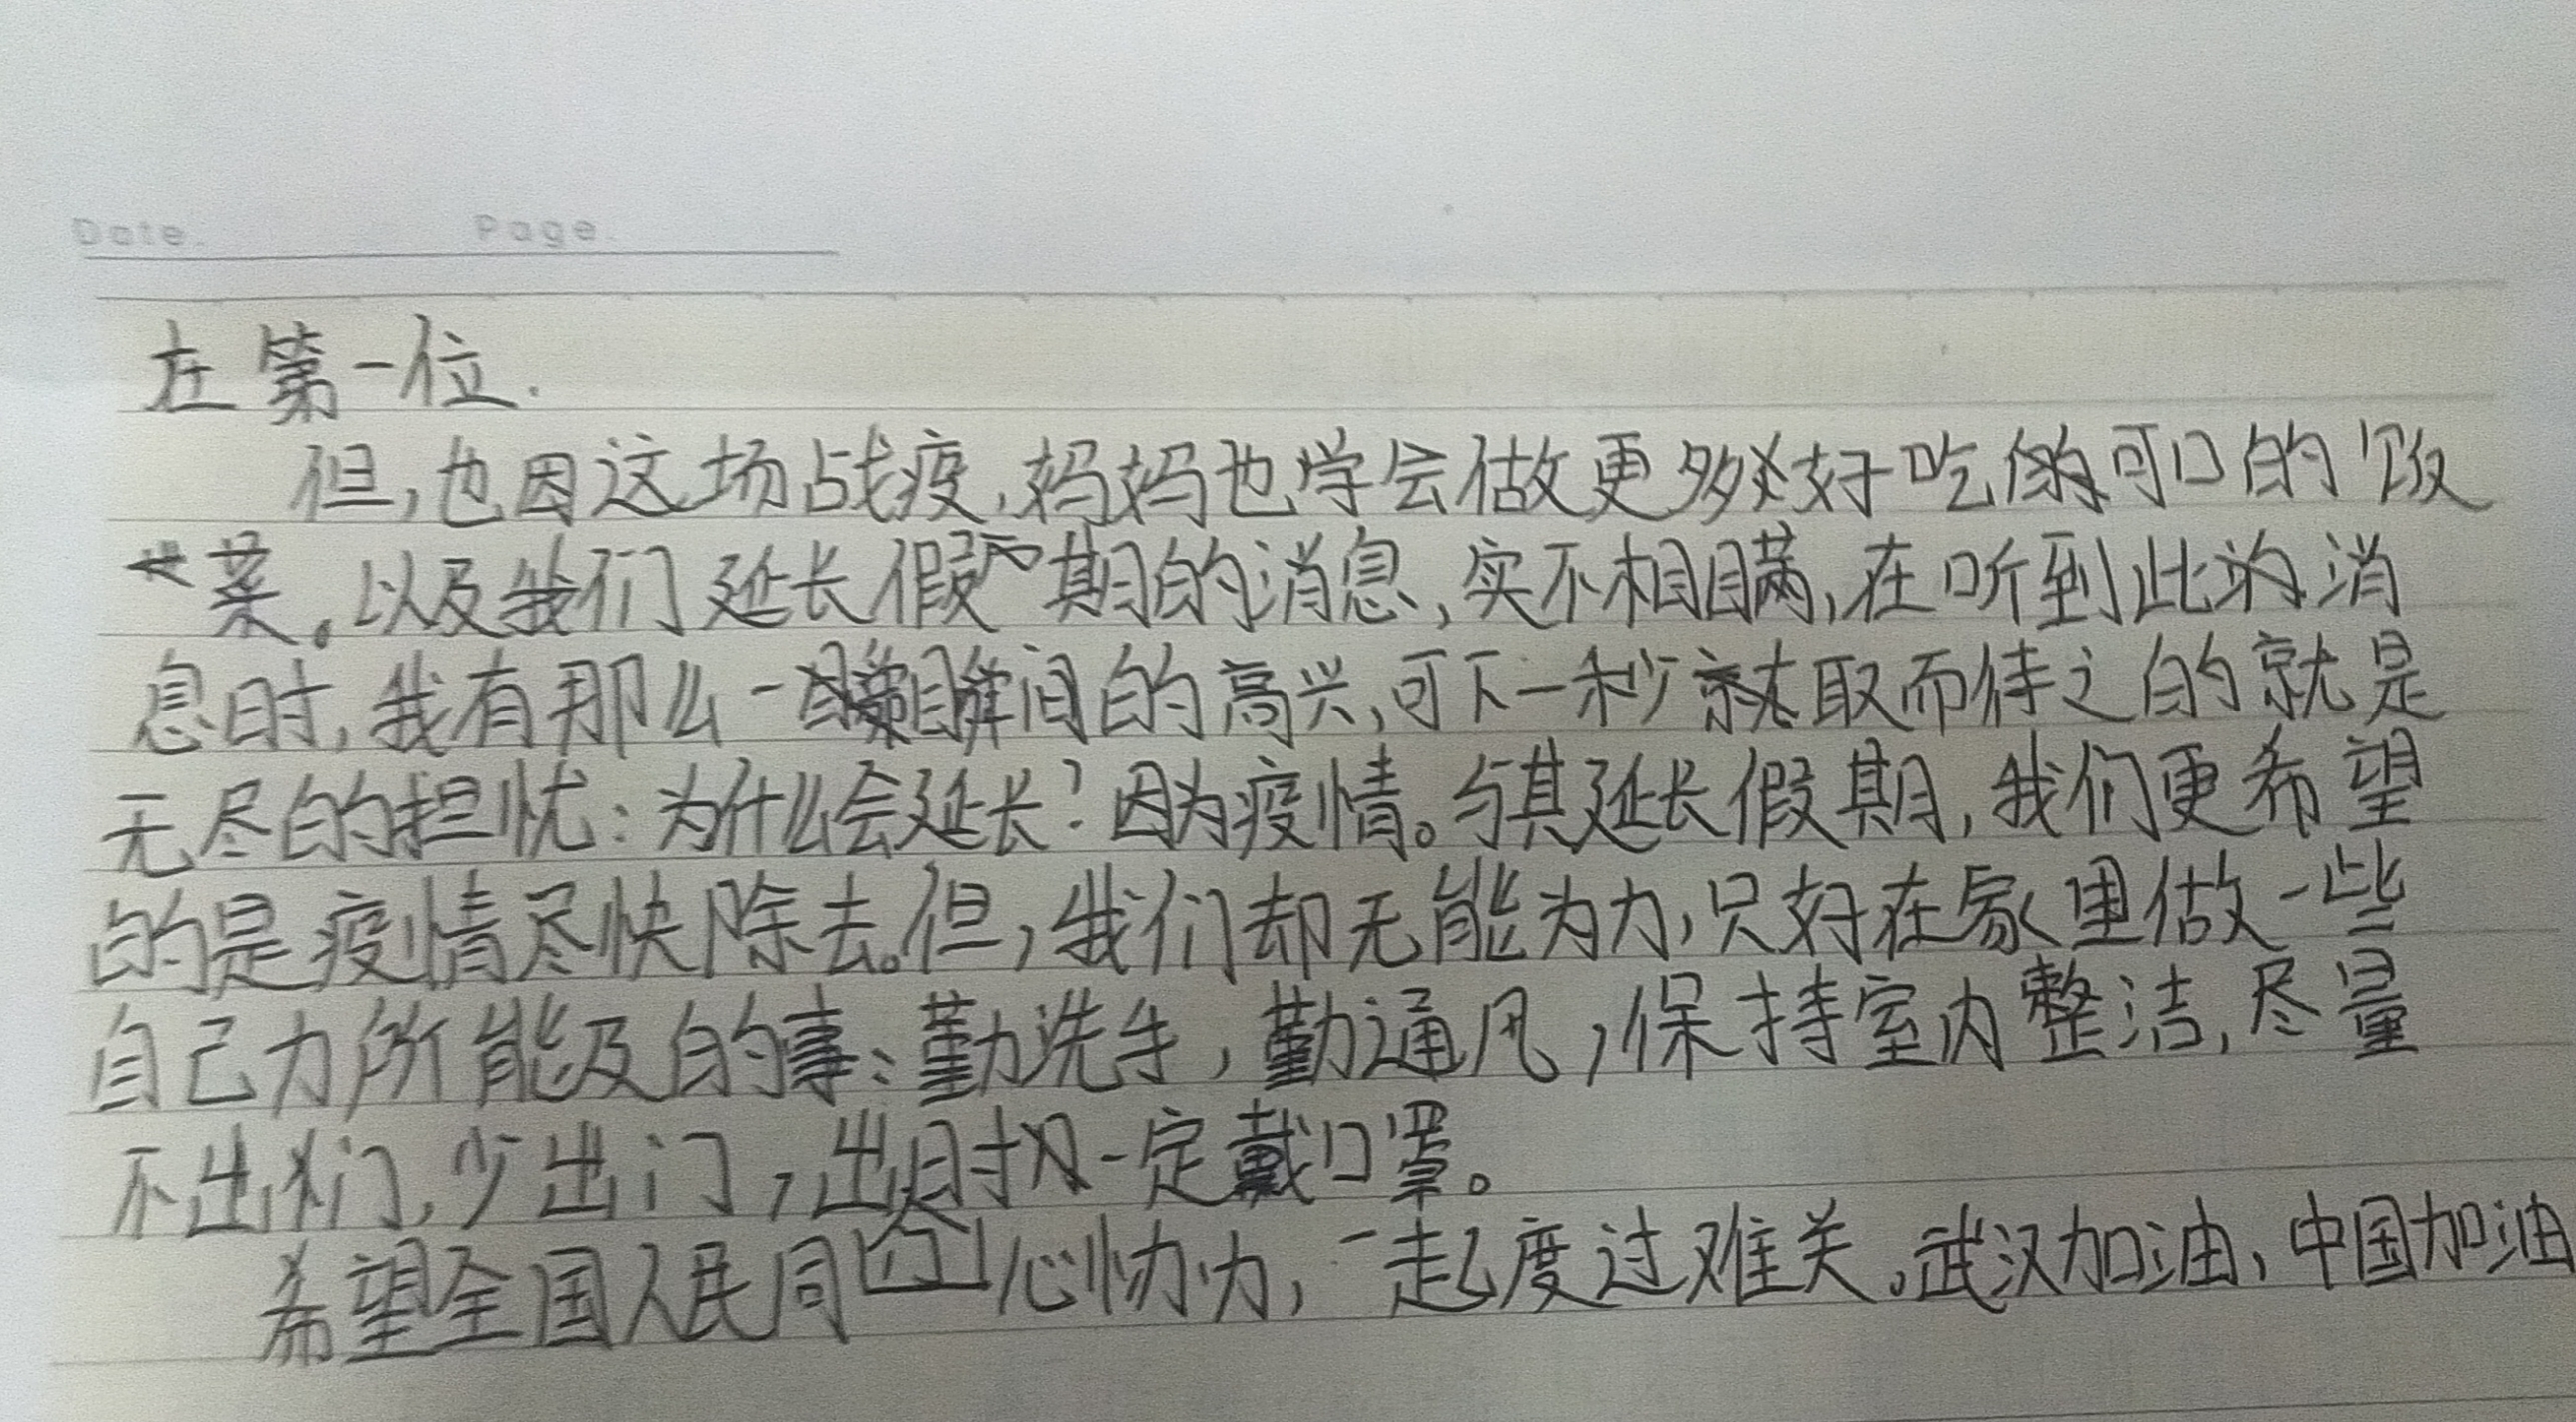 Date. Page.
在第一位.
但,也因这场战疫,妈妈也学会做更多好吃的可口的饭
菜。以及我们延长假期的消息,实不相瞒,在听到此的消
息时,我有那么一瞬间的高兴,可下一秒就取而待之的就是
无尽的担忧:为什么会延长?因为疫情。与其延长假期,我们更希望
的是疫情尽快除去。但,我们却无能为力,只好在家里做一些
自己力所能及的事:勤洗手,勤通风,保持室内整洁,尽量
不出门,少出门,出时一定戴口罩。
希望全国人民同心协力,一起度过难关。武汉加油,中国加油